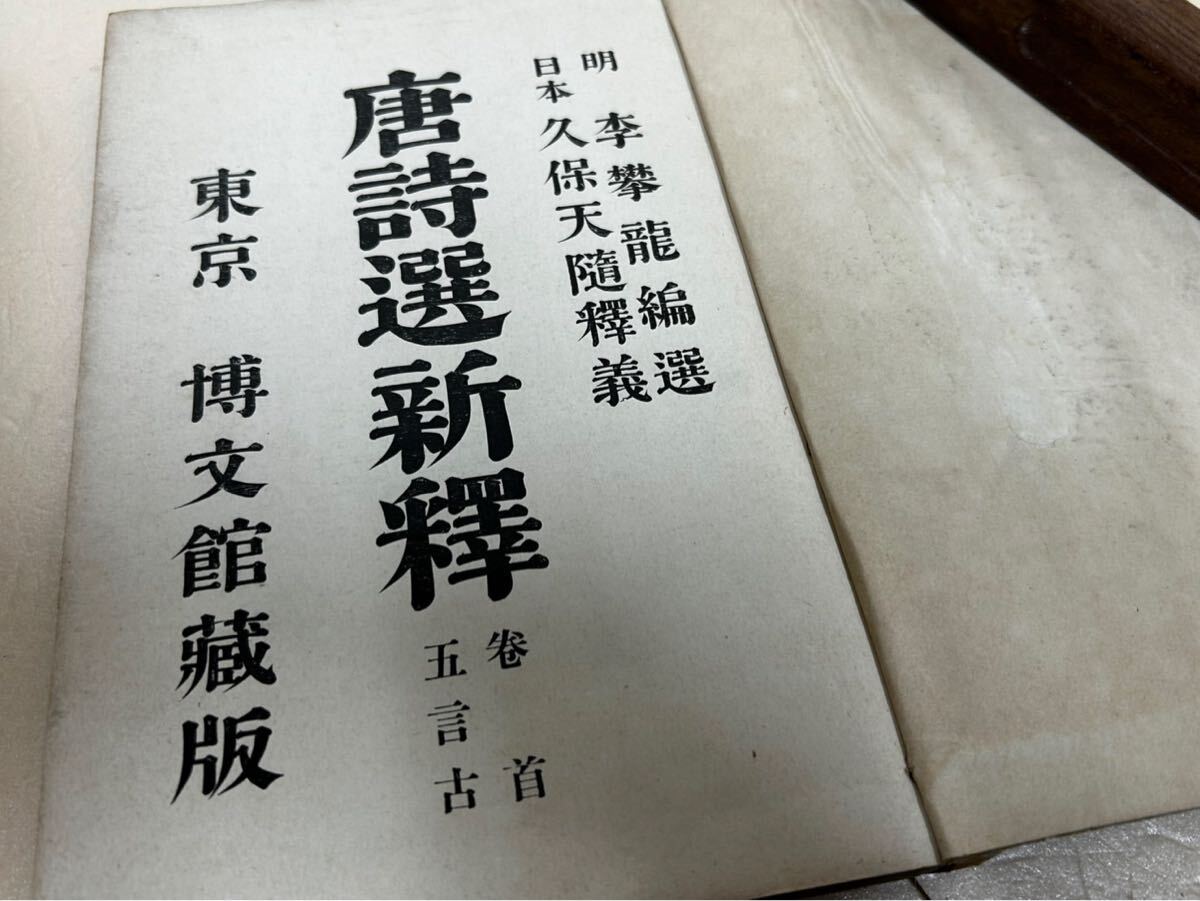 明 李攀龍編選
日本 久保天隨釋義
唐詩選新釋
卷首
五言古
東京 博文館藏版